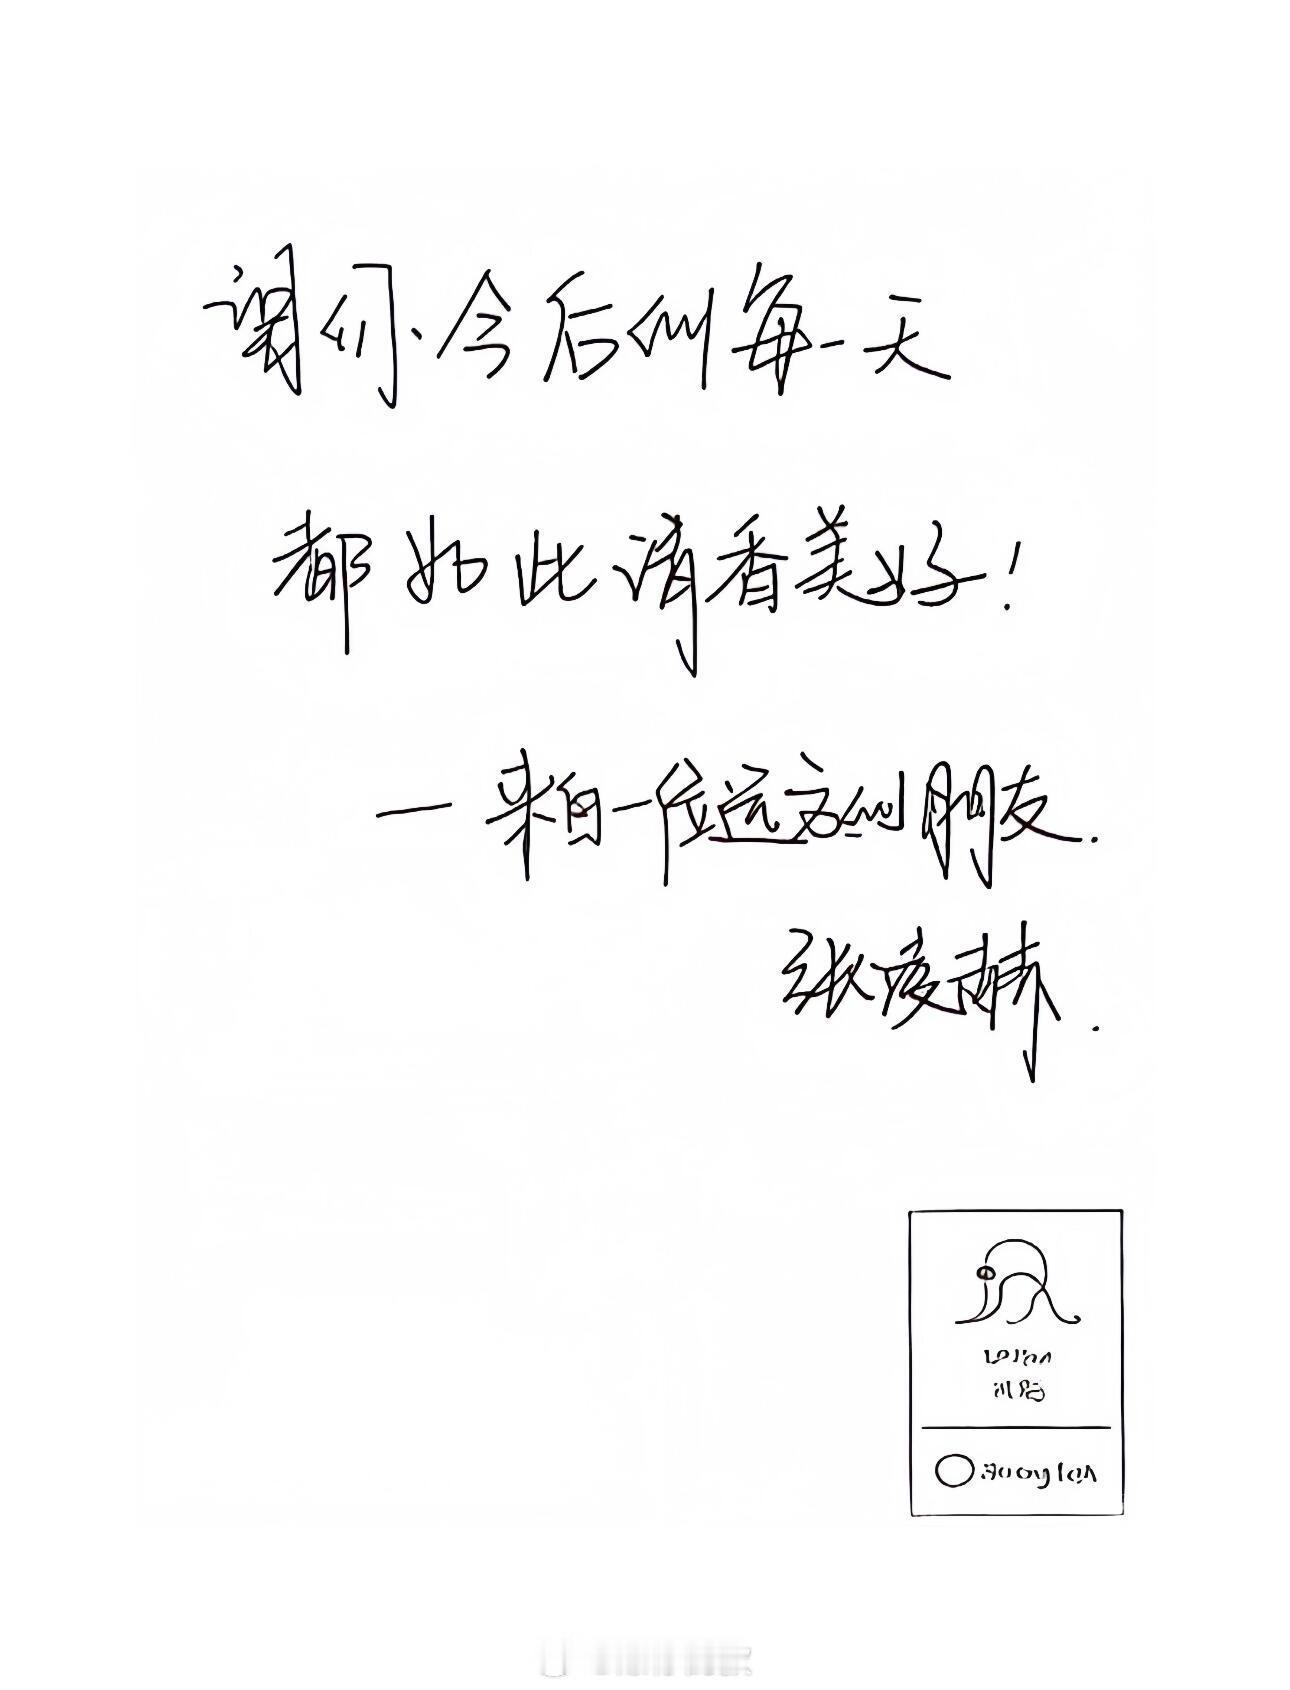 谓你、今后的每一天
都如此清香美好！
一来自一位远方的朋友.
张凌赫.